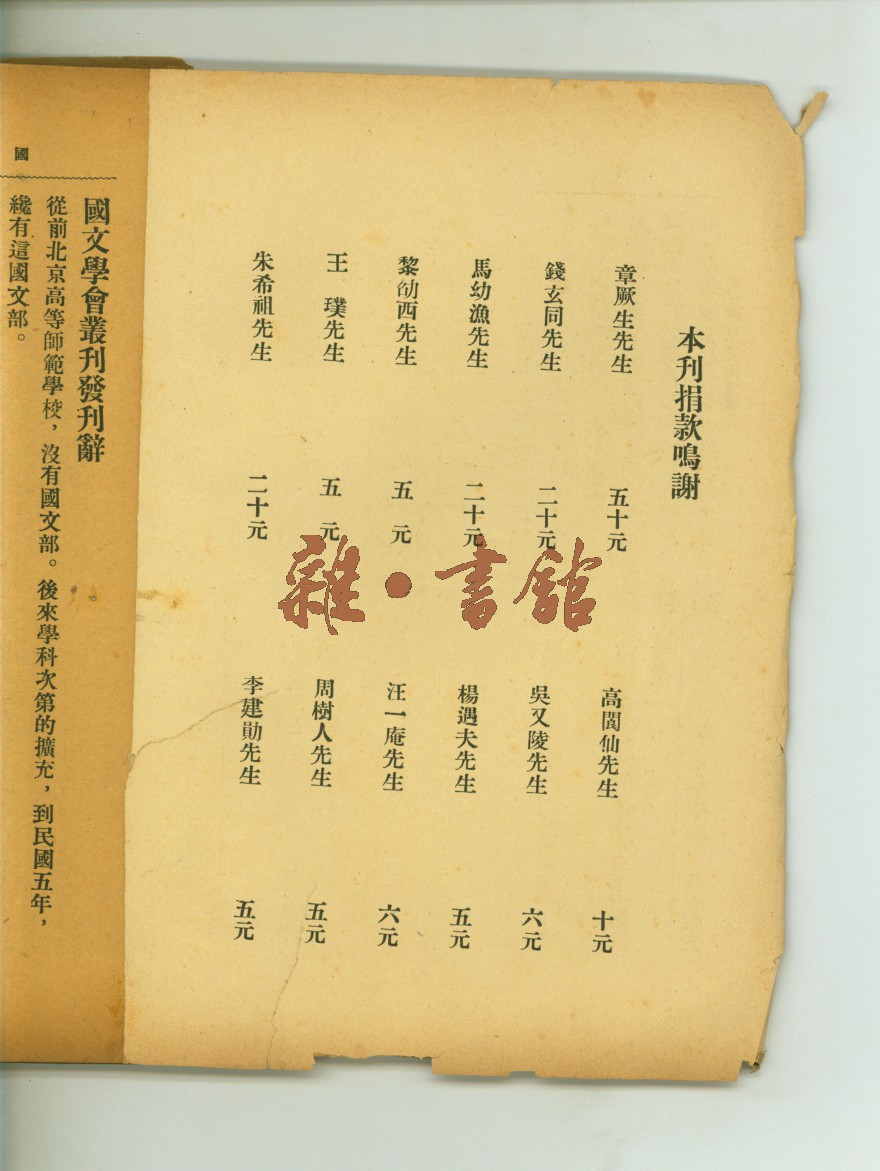 本刊捐款鳴謝
章厥生先生 五十元
錢玄同先生 二十元
馬幼漁先生 二十元
黎劭西先生 五元
王璞先生 五元
朱希祖先生 二十元
高閬仙先生 十元
吳又陵先生 六元
楊遇夫先生 五元
汪一庵先生 六元
周樹人先生 五元
李建勛先生 五元
雜·書館
國
國文學會叢刊發刊辭
從前北京高等師範學校，沒有國文部。後來學科次第的擴充，到民國五年，
纔有這國文部。